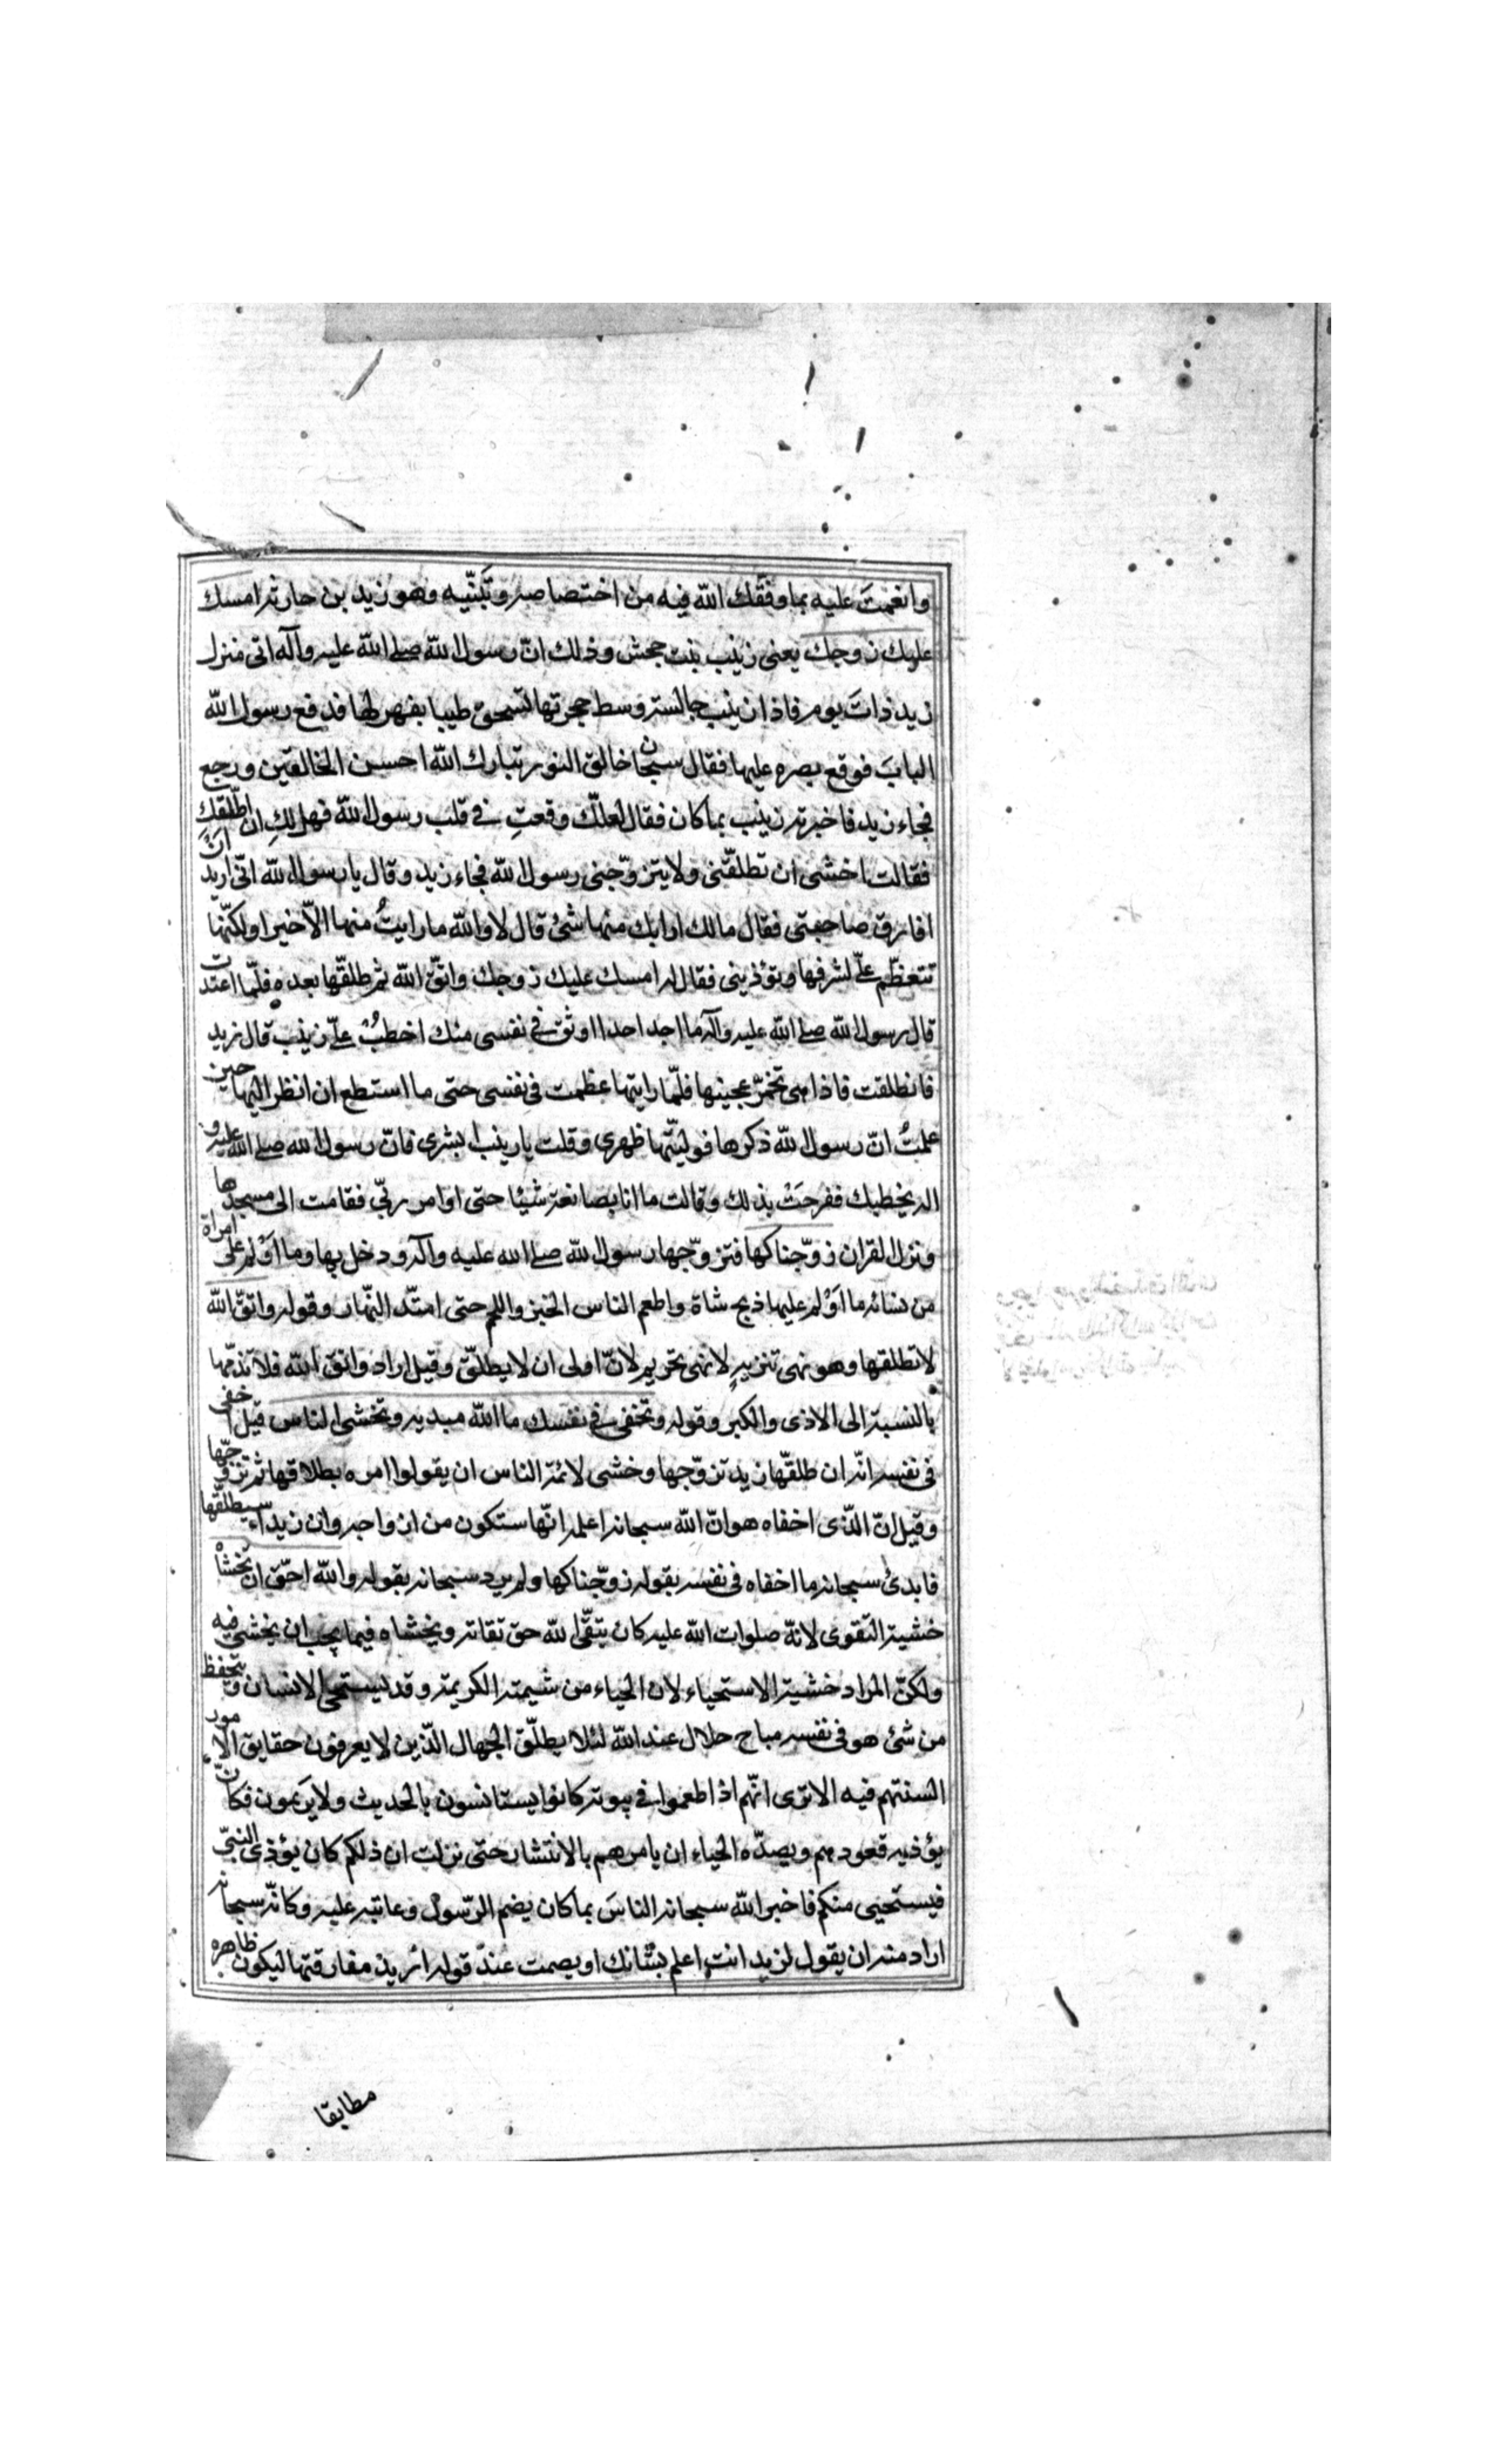 وانعمتَ عليه بما وفّقك الله فيه من اختصاصه وتَبنّيه وهو زيد بن حارثة امسك
عليك زوجك يعنى زينب بنت جحش وذلك انّ رسول الله صلى الله عليه وآله اتى منزل
زيد ذاتَ يوم فاذا زينب جالسة وسط حجرتها تسحق طيبا بفهر لها فدفع رسول الله
البابَ فوقع بصره عليها فقال سبحان خالق النور تبارك الله احسن الخالقين ورجع
فجاء زيد فاخبرته زينب بما كان فقال لعلّك وقعتِ في قلب رسول الله فهل لكِ ان اطلّقكِ
فقالت اخشى ان تطلّقنى ولا يتزوّجنى رسول الله فجاء زيد وقال يا رسول الله انّى اريد ان
افارق صاحبتى فقال مالك ارابك منها شئ قال لا والله ما رايتُ منها الاّ خيرا ولكنّها
تتعظّم علىّ لشرفها وتؤذينى فقال له امسك عليك زوجك واتّق الله ثم طلقّها بعده فلمّا اعتدت
قال رسول الله صلى الله عليه وآله ما اجد احدا اوثق في نفسى منك اخطبْ علىّ زينب قال زيد
فانطلقت فاذا هى تخمّر عجينها فلمّا رايتها عظمت فى نفسى حتى ما استطع ان انظر اليها حين
علمتُ انّ رسول الله ذكرها فوليّتها ظهرى وقلت يا زينب ابشرى فانّ رسول الله صلى الله عليه و
اله يخطبك ففرحَتْ بذلك وقالت ما انا بصانعة شيئا حتى اوامر ربّي فقامت الى مسجدها
ونزل القران زوّجناكها فتزوّجها رسول الله صلى الله عليه وآله ودخل بها وما اَوْلم على امراة
من نسائه ما اَوْلم عليها ذبح شاة واطعم الناس الخبز واللحم حتى امتّد النّهار وقوله واتّق الله
لا تطلقها وهو نهى تنزيهٍ لا نهى تحريم لانّ اولى ان لا يطلّق وقيل اراد واتق الله فلا تذمّها
بالنسبة الى الاذى والكبر وقوله وتخفى فى نفسك ما الله مبديه وتخشى الناس قيل اخفى
فى نفسه انّه ان طلقّها زيد تزوّجها وخشى لائمة الناس ان يقولوا امره بطلاقها ثم تزوّجها
وقيل انّ الذّى اخفاه هو انّ الله سبحانه اعلمه انّها ستكون من ازواجه وان زيدا سيطلّقها
فابدئ سبحانه ما اخفاه فى نفسه بقوله زوّجناكها ولم يرد سبحانه بقوله والله احّق ان تخشاه
خشية التقوى لانهّ صلوات الله عليه كان يتقّى الله حق تقاته ويخشاه فيما يجب ان يخشى فيه
ولكنّ المراد خشية الاستحياء لان الحياء من شيمته الكريمة وقد يستحى الانسان ويتحفظ
من شئ هو فى نفسه مباح حلال عند الله لئلا يطلّق الجهال الّذين لا يعرفون حقايق الامور
السنتهم فيه الا ترى انّهم اذا طعموا فى بيوته كانوا يستانسون بالحديث ولا يَريمون فكان
يؤذيه قعودهم ويصدّه الحياء ان يامرهم بالانتشار حتى نزلت ان ذلكم كان يؤذى النبىّ
فيستحيى منكم فاخبر الله سبحانه الناسَ بما كان يضمر الرّسول وعاتبه عليه وكانّه سبحانه
اراد منه ان يقول لزيد انت اعلم بشانك او يصمت عند قوله اريد مفارقتها ليكون ظاهره
مطابقا